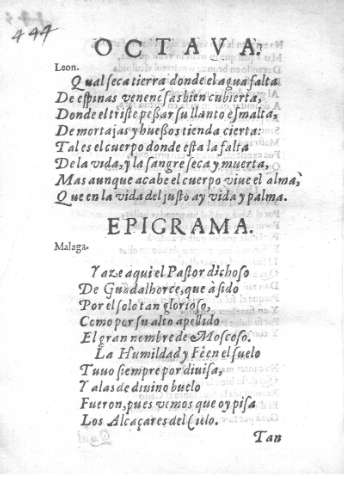 444
OCTAVA.
Leon.
Qual seca tierra donde el agua falta
De espinas venenosas bien cubierta,
Donde el triste pesar su llanto esmalta,
De mortajas y huessos tienda cierta:
Tal es el cuerpo donde esta la falta
De la vida, y la sangre seca y muerta,
Mas aunque acabe el cuerpo viue el alma,
Que en la vida del justo ay vida y palma.
EPIGRAMA.
Malaga.
Yaze aqui el Pastor dichoso
De Guadalhorce, que à sido
Por el solo tan glorioso,
Como por su alto apellido
El gran nombre de Moscoso.
La Humildad y Fè en el suelo
Tuuo siempre por diuisa,
Y alas de diuino buelo
Fueron, pues vimos que oy pisa
Los Alcaçares del Cielo.
Tan